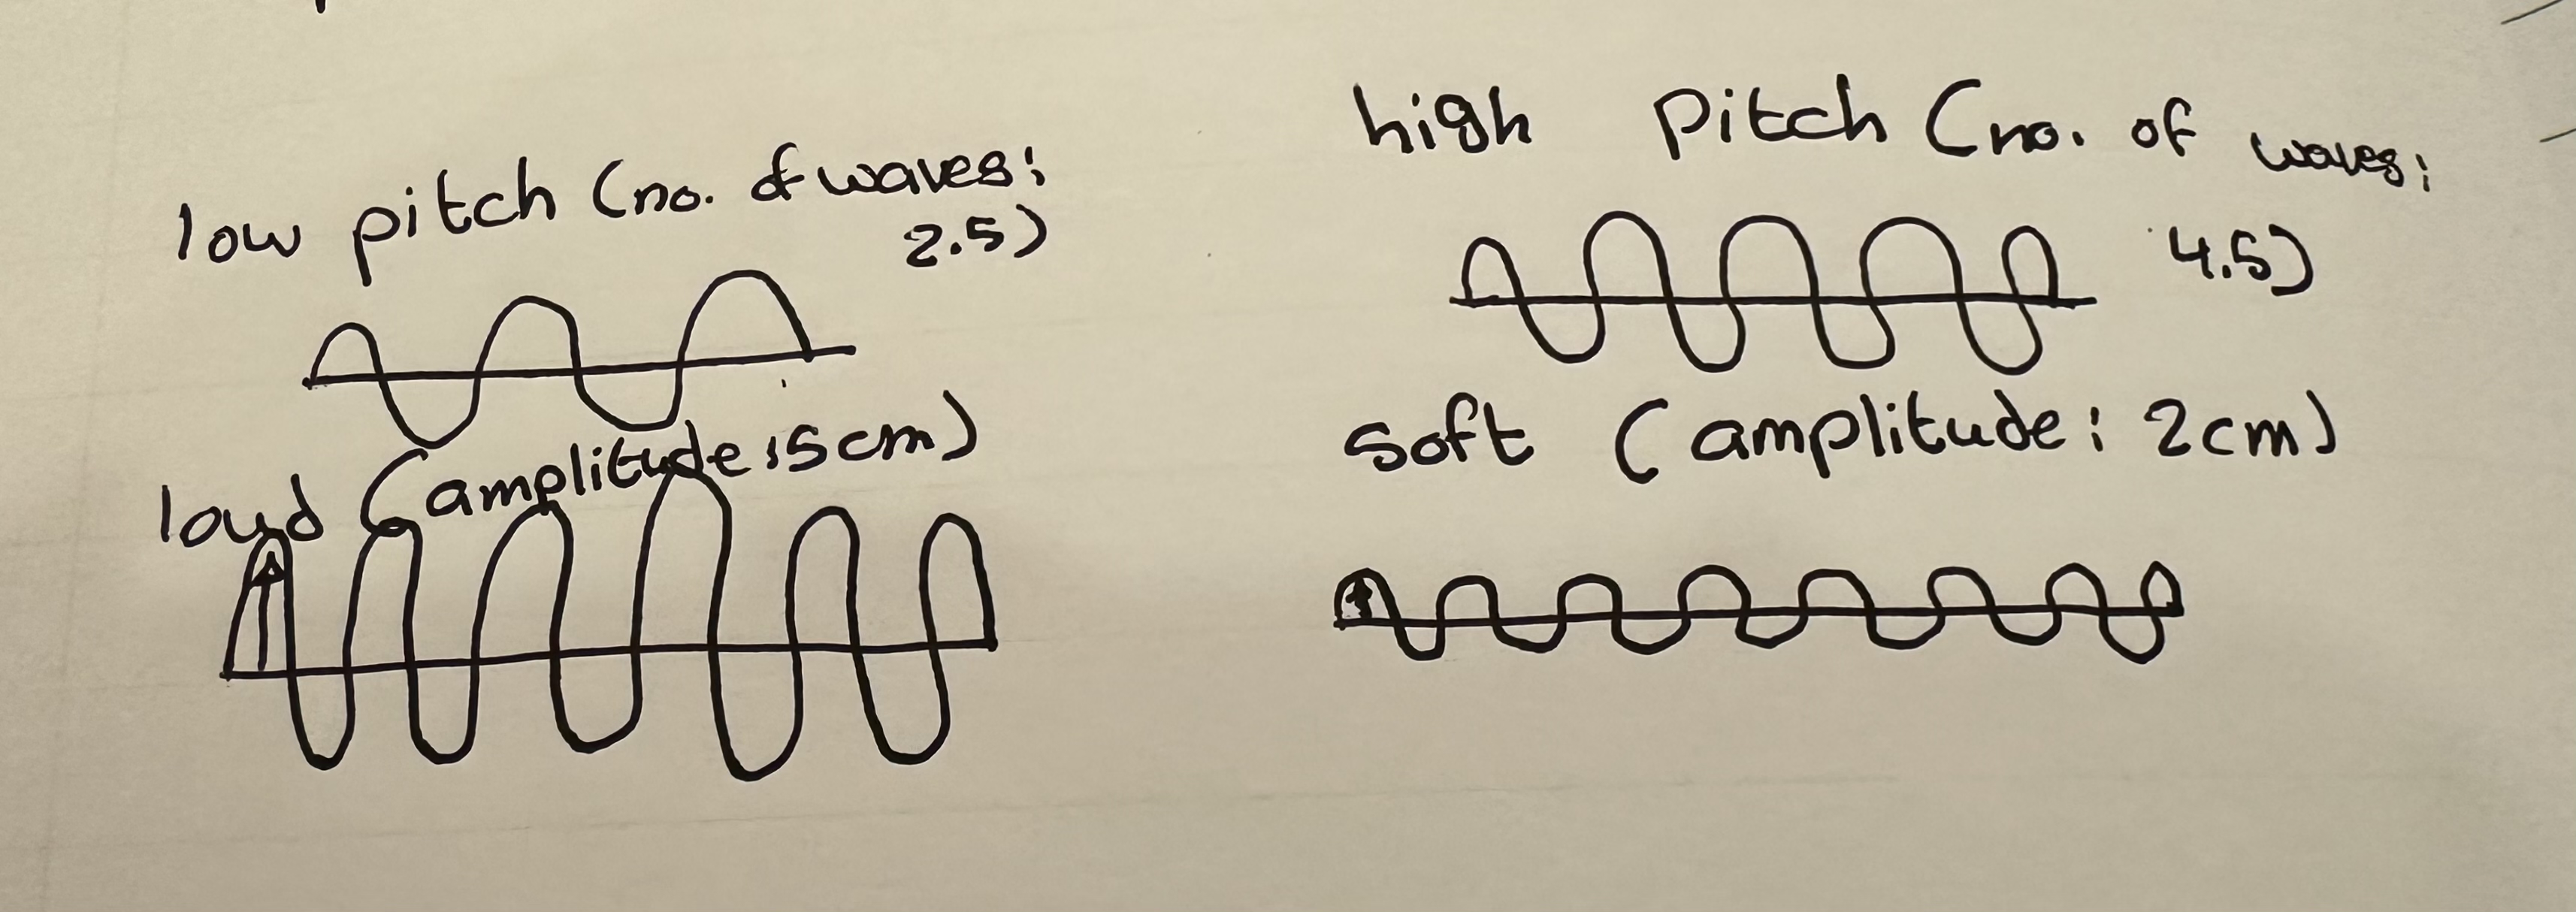 low pitch (no. of waves:
2.5)
high Pitch (no. of waves:
4.5)
loud (amplitude: 5cm)
soft (amplitude: 2cm)